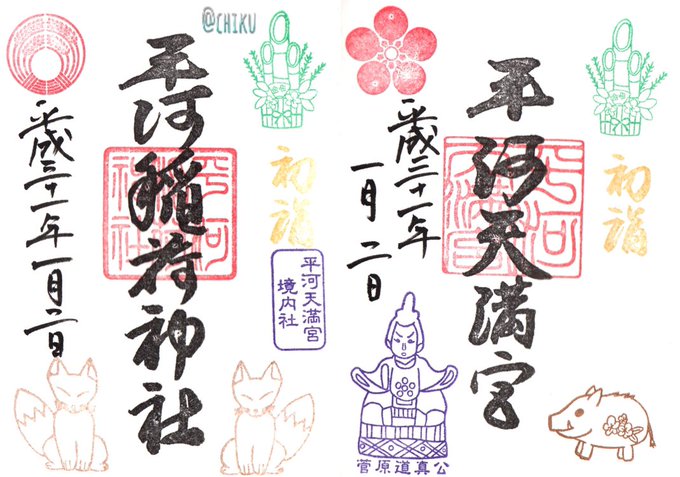 @CHIKU
初福
平河天満宮
平成三十一年
一月二日
菅原道真公
初福
平河天満宮
境内社
平河稲荷神社
平成三十一年一月二日